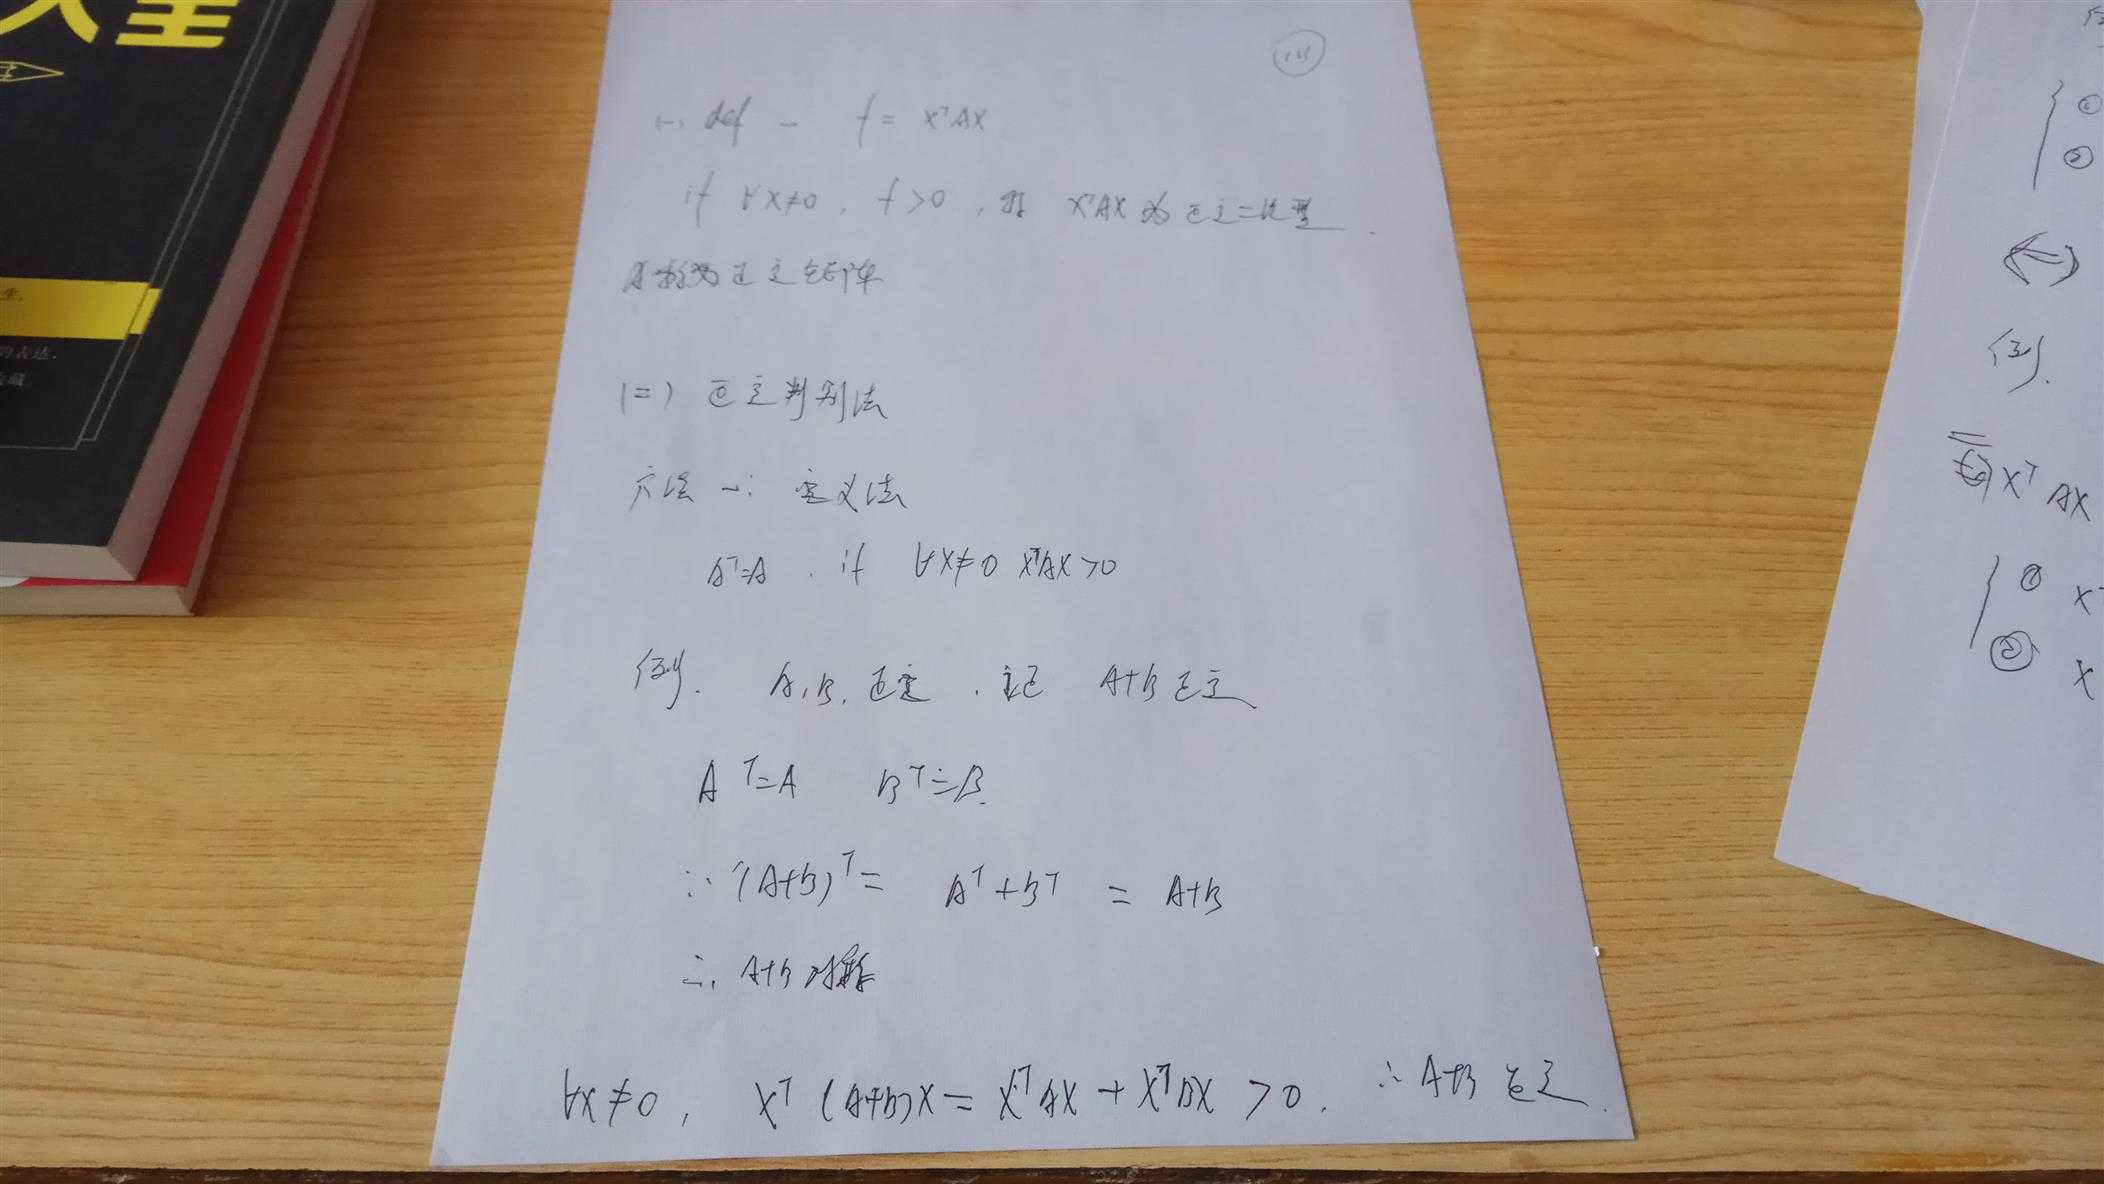 大全
生,
的表达,
典藏
(一) def - f = XᵀAX
if ∀X≠0, f>0, 称 XᵀAX 为正定二次型.
A称为正定矩阵
(二) 正定判别法
方法一: 定义法
Aᵀ=A, if ∀X≠0 XᵀAX>0
例. A, B, 正定, 证 A+B 正定
Aᵀ=A Bᵀ=B.
∵ (A+B)ᵀ = Aᵀ+Bᵀ = A+B
∴ A+B 对称
∀X≠0, Xᵀ(A+B)X = XᵀAX + XᵀBX > 0. ∴ A+B 正定.
①
②
(一)
例.
XᵀAX
① Xᵀ
② X